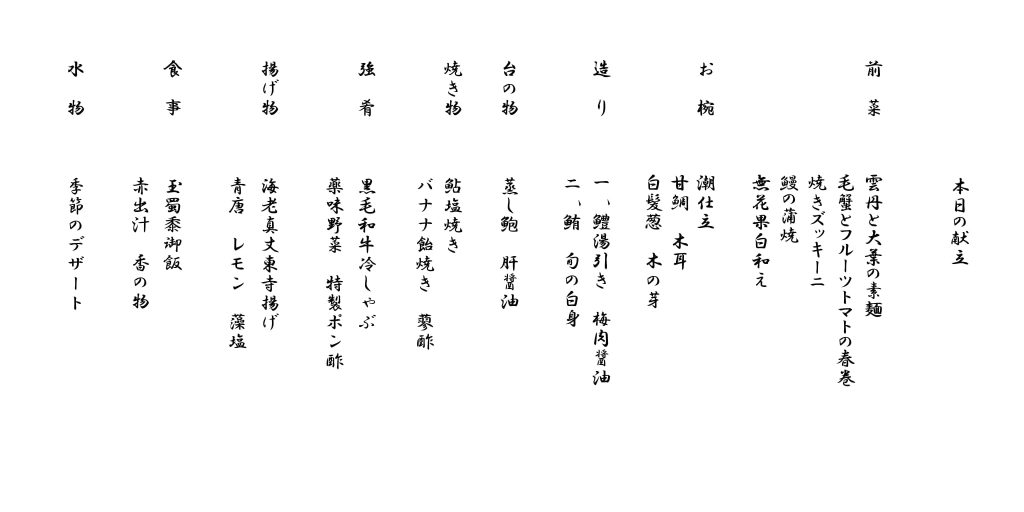 本日の献立
前菜
雲丹と大葉の素麺
毛蟹とフルーツトマトの春巻
焼きズッキーニ
鰻の蒲焼
無花果白和え
お椀
潮仕立
甘鯛 木耳
白髪葱 木の芽
造り
一、鱧湯引き 梅肉醤油
二、鮪 旬の白身
台の物
蒸し鮑 肝醤油
焼き物
鮎塩焼き
バナナ飴焼き 蓼酢
強肴
黒毛和牛冷しゃぶ
薬味野菜 特製ポン酢
揚げ物
海老真丈東寺揚げ
青唐 レモン 藻塩
食事
玉蜀黍御飯
赤出汁 香の物
水物
季節のデザート